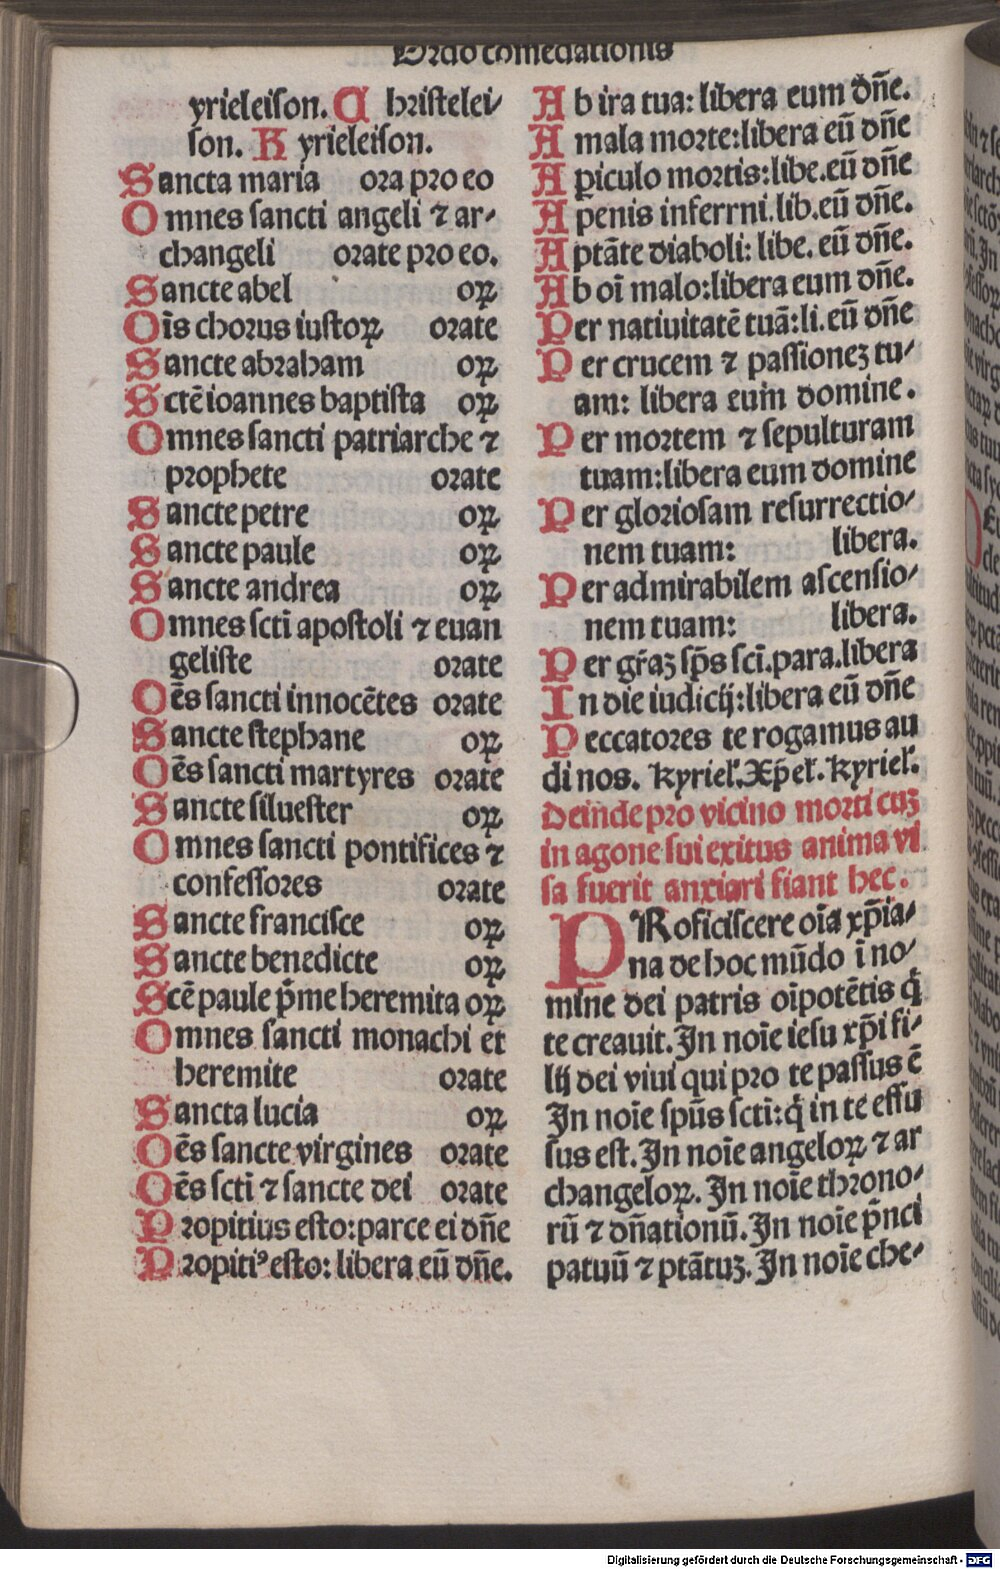 Ordo comēdationis
yrieleison. Christelei/
son. Kyrieleison.
Sancta maria ora pro eo
Omnes sancti angeli ⁊ ar/
changeli orate pro eo.
Sancte abel oꝝ
Oīs chorus iustoꝝ orate
Sancte abraham oꝝ
Sctē ioannes baptista oꝝ
Omnes sancti patriarche ⁊
prophete orate
Sancte petre oꝝ
Sancte paule oꝝ
Sancte andrea oꝝ
Omnes sctī apostoli ⁊ euan
geliste orate
Oēs sancti innocētes orate
Sancte stephane oꝝ
Oēs sancti martyres orate
Sancte siluester oꝝ
Omnes sancti pontifices ⁊
confessores orate
Sancte francisce oꝝ
Sancte benedicte oꝝ
Scē paule p̄me heremita oꝝ
Omnes sancti monachi et
heremite orate
Sancta lucia oꝝ
Oēs sancte virgines orate
Oēs sctī ⁊ sancte dei orate
Propitius esto: parce ei dn̄e
Propitiꝰ esto: libera eū dn̄e.
Ab ira tua: libera eum dn̄e.
A mala morte: libera eū dn̄e
A ꝑiculo mortis: libe. eū dn̄e
A penis inferrni. lib. eū dn̄e.
A ptāte diaboli: libe. eū dn̄e.
Ab oī malo: libera eum dn̄e.
Per natiuitatē tuā: li. eū dn̄e
Per crucem ⁊ passioneꝫ tu/
am: libera eum domine.
Per mortem ⁊ sepulturam
tuam: libera eum domine
Per gloriosam resurrectio/
nem tuam: libera.
Per admirabilem ascensio/
nem tuam: libera.
Per gr̄aꝫ sp̄s sctī. para. libera
In die iudicij: libera eū dn̄e
Peccatores te rogamus au
di nos. Kyriel̄. Xp̄el̄. Kyriel̄.
Deinde pro vicino morti cuꝫ
in agone sui exitus anima vi
sa fuerit anxiari fiant hec.
PRoficiscere oīa xp̄ia/
na de hoc mūdo ī no/
mine dei patris oīpotētis q̄
te creauit. In noīe iesu xp̄i fi/
lij dei viui qui pro te passus ē
In noīe spūs sctī: q̄ in te effu
sus est. In noīe angeloꝝ ⁊ ar
changeloꝝ. In noīe throno/
rū ⁊ dn̄ationū. In noīe p̄nci
patuū ⁊ ptātuꝫ. In noīe che/
Digitalisierung gefördert durch die Deutsche Forschungsgemeinschaft - DFG